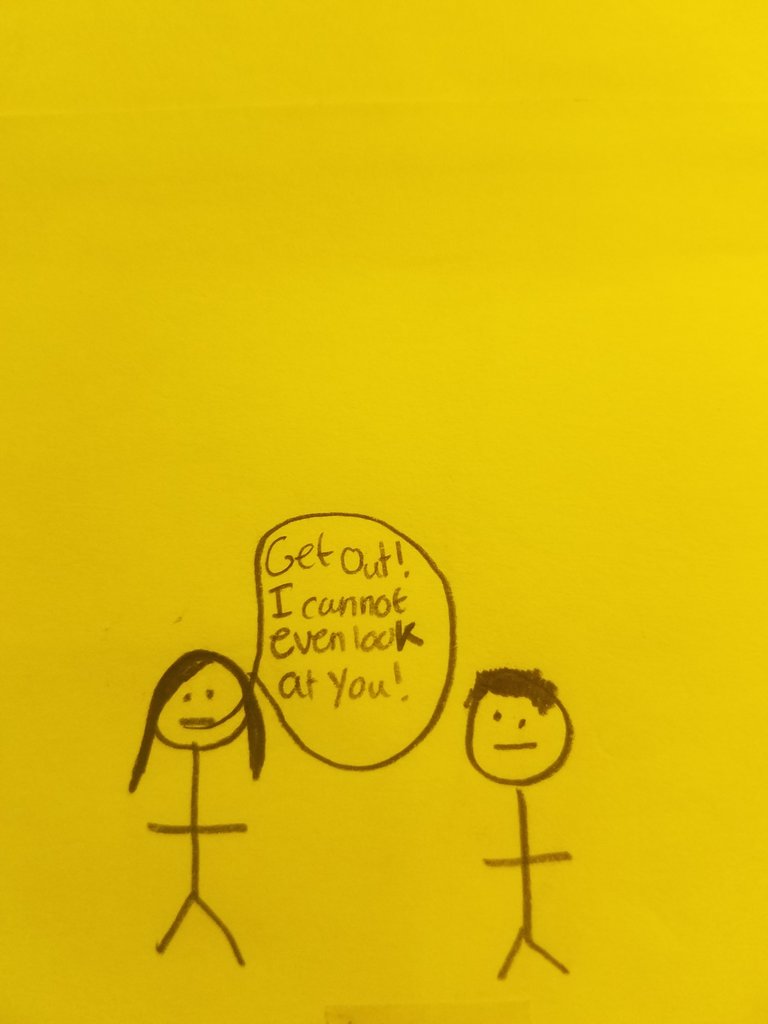 Get out!
I cannot
even look
at you!